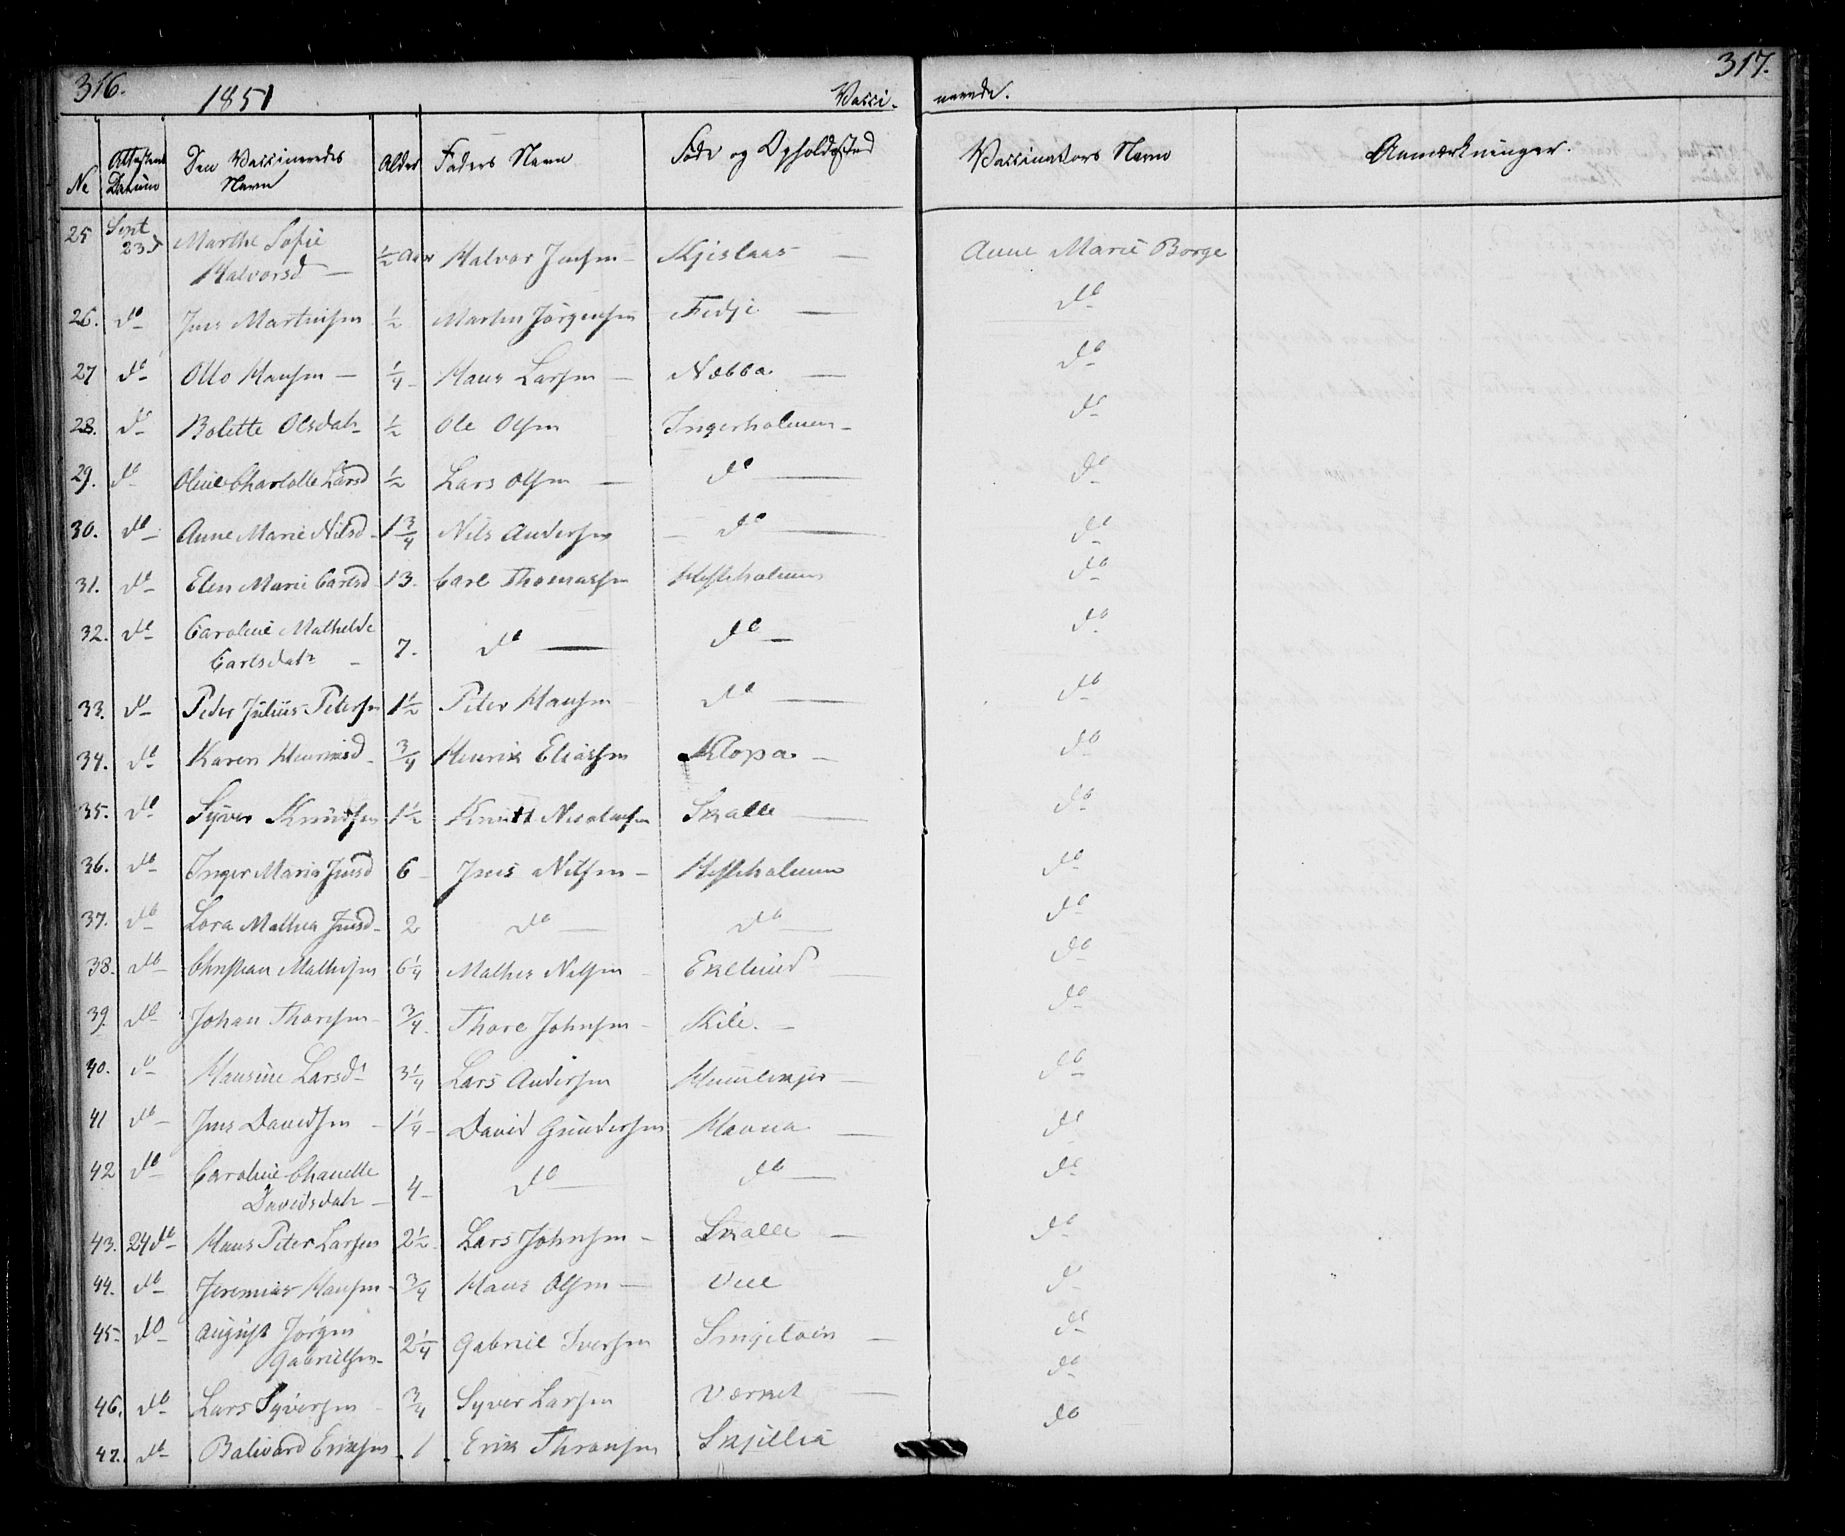 316. 1851 Vacci- nerede. 317.
No Attestens Datum Den Vaccineredes Navn Alder Faders Navn Føde og Opholdssted Vaccinators Navn Anmærkninger.
25 Sept 23d Marthe Sofie Halvorsd ½ Aar Halvor Jensen Kjislaas Anne Marie Borge
26. do Jens Martinsen ½ Martin Jørgensen Fedje do
27 do Otto Hansen ¼ Hans Larsen Nabba do
28. do Bolette Olsdatr ½ Ole Olsen Ingerholmen do
29. do Oline Charlotte Larsd ½ Lars Olsen do do
30. do Anne Marie Nilsd 1¾ Nils Andersen do do
31. do Elen Marie Carlsd 13 Carl Thomassen Hesteholmen do
32. do Caroline Mathilde
Carlsdatr 7. do do do
33. do Peder Julius Petersen 1½ Peter Hansen do do
34. do Karen Henriksd ¾ Henrik Eliassen Klopa do
35. do Syver Knudsen 1½ Knutt Nicolaisen Skalle do
36. do Inger Maria Jensd 6 Jens Nilsen Hesteholmen do
37. do Lora Mathea Jensd 2 do do do
38. do Christian Mathisen 6¼ Mathis Nilsen Eklund do
39. do Johan Thoresen ¾ Thore Johnsen Kile. do
40. do Hansine Larsd 3¼ Lars Andersen do
41 do Jens Davidsen 1¼ David Gundersen Havna do
42 do Caroline Chanette
Davidsdatr 4 do do do
43. 24 do Hans Peter Larsen 2½ Lars Johnsen Skalle do
44. do Jeremias Hansen ¾ Hans Olsen do
45 do August Jørgen
Gabrielsen 2¼ Gabriel Iversen do
46. do Lars Syversen ¾ Syver Larsen Værket do
47. do Balivard Eriksen 1 Erik Thronsen Skjellia do